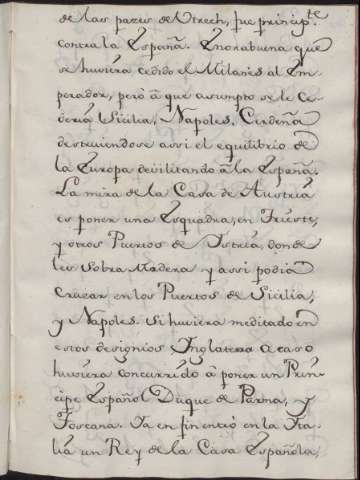 de las pazes de Utrech, fue principte
contra la España. Enorabuena que
se huviera cedido el Milanes al Em-
perador, pero â que assumpto se le ce-
deria Sicilia, Napoles, Cerdeña
destruiendose assi el equilibrio de
la Europa devilitando â la España.
La mira de la Casa de Austria
es poner una Esquadra, en Trieste,
y otros Puertos de Istria, donde
les sobra Madera y assi podia
Cruzar en los Puertos de Sicilia,
y Napoles. Si huviera meditado en
estos designios Inglaterra acaso
huviera concurrido â poner un Prin-
cipe Español Duque de Parma, y
Toscana. Ya en fin entrò en la Ita-
lia un Rey de la Casa Española,